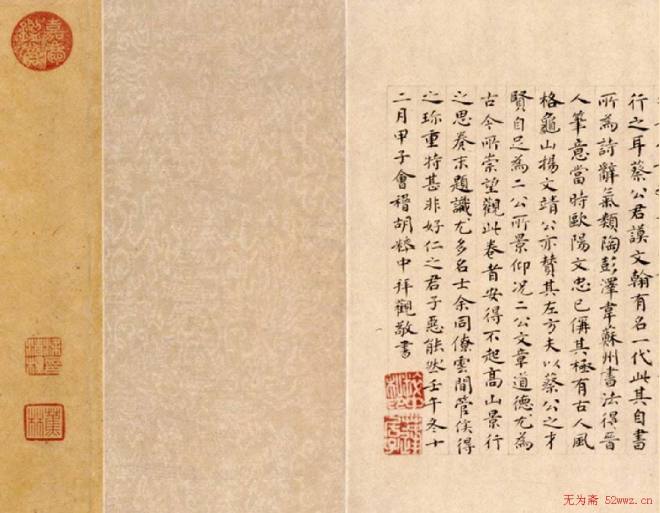 行之耳蔡公君謨文翰有名一代此其自書
所為詩辭氣類陶彭澤韋蘇州書法得晉
人筆意當時歐陽文忠已儞其極有古人風
格龜山楊文靖公亦賛其左方夫以蔡公之才
賢自足為二公所景仰况二公文章道德尤為
古今所崇望觀此卷者安得不起高山景行
之思卷末題識尤多名士余同僚雲間管侯得
之珎重特甚非好仁之君子惡能然壬午冬十
二月甲子會稽胡粹中拜觀敬書
嘉慶鑑賞
无为斋 52wwz.cn